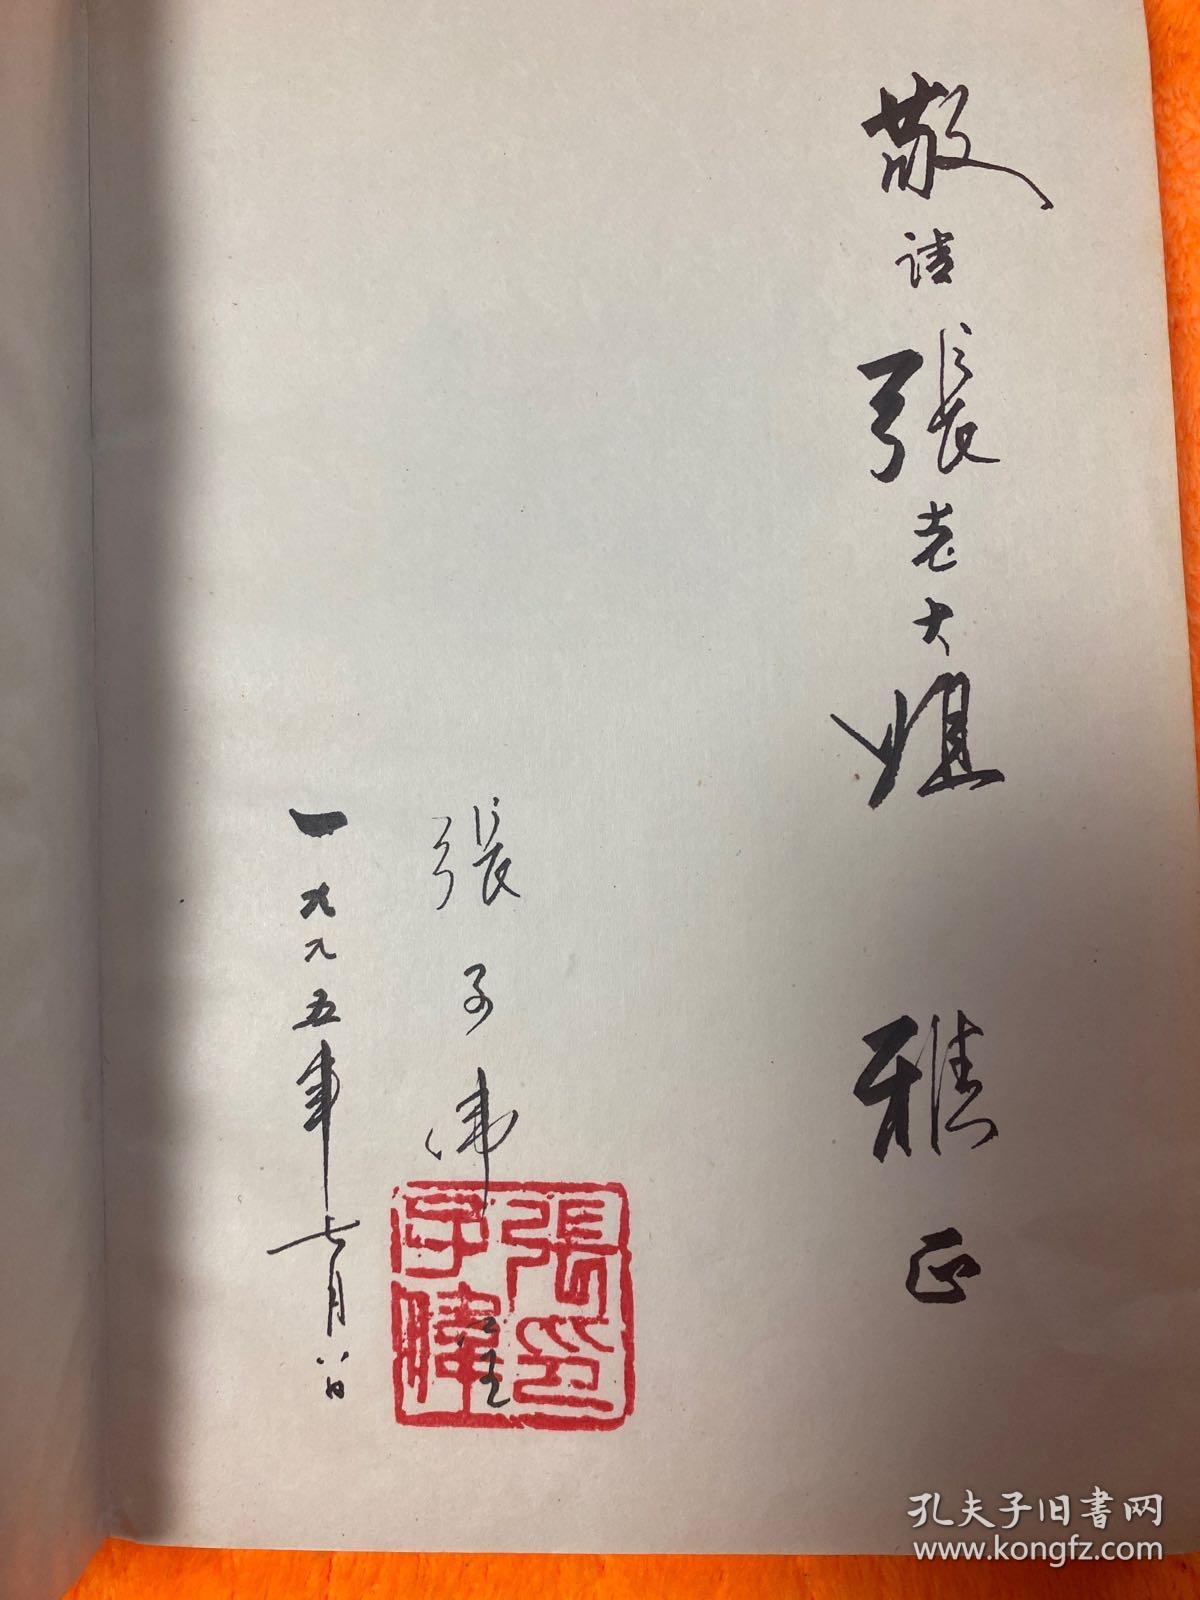 敬请張老大姐 雅正
張子伟
一九九五年七月八日
張印子暐
孔夫子旧書网
www.kongfz.com